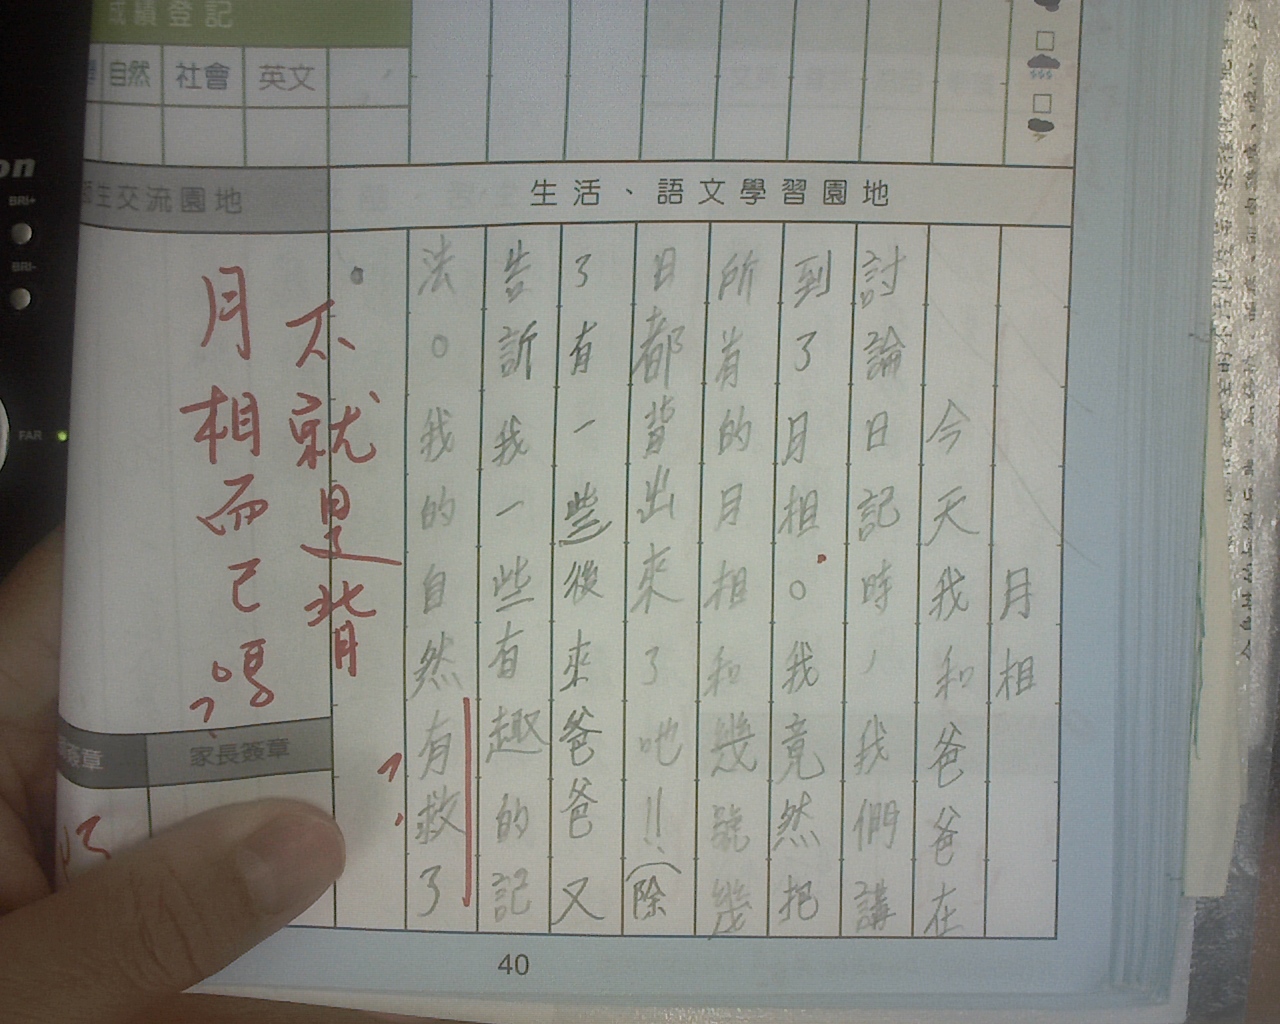 成績登記
自然 社會 英文
生交流園地
生活、語文學習園地
月相
今天我和爸爸在
討論日記時，我們講
到了月相。我竟然把
所有的月相和幾號幾
日都背出來了吔!!(除
了有一些後來爸爸又
告訴我一些有趣的記
法。我的自然有救了
。
不就是背
月相而已嗎
?
家長簽章
簽章
40
on
BRI+
BRI-
FAR